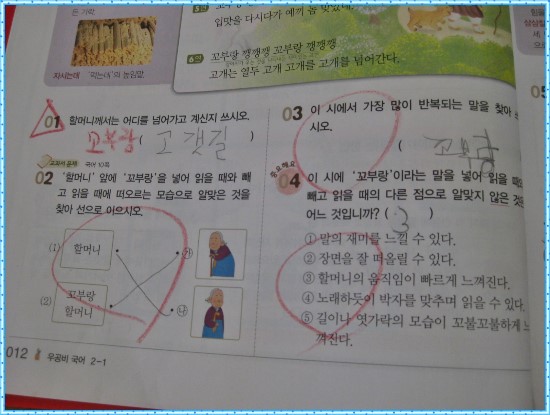 자시는데 '먹는데'의 높임말
입맛을 다시다가 예끼 놈 맞았네.
6연
꼬부랑 깽깽깽 꼬부랑 깽깽깽
고개는 열두 고개 고개를 고개를 넘어간다.
01 할머니께서는 어디를 넘어가고 계신지 쓰시오.
꼬부랑 ( 고갯길 )
교과서 문제 국어 10쪽
02 '할머니' 앞에 '꼬부랑'을 넣어 읽을 때와 빼
고 읽을 때에 떠오르는 모습으로 알맞은 것을
찾아 선으로 이으시오.
(1) 할머니
㉮
(2) 꼬부랑
할머니
㉯
03 이 시에서 가장 많이 반복되는 말을 찾아 쓰
시오.
( 꼬부랑 )
중요해요
04 이 시에 '꼬부랑'이라는 말을 넣어 읽을 때와
빼고 읽을 때의 다른 점으로 알맞지 않은 것은
어느 것입니까? ( 3 )
① 말의 재미를 느낄 수 있다.
② 장면을 잘 떠올릴 수 있다.
③ 할머니의 움직임이 빠르게 느껴진다.
④ 노래하듯이 박자를 맞추며 읽을 수 있다.
⑤ 길이나 엿가락의 모습이 꼬불꼬불하게 느
껴진다.
012 우공비 국어 2-1